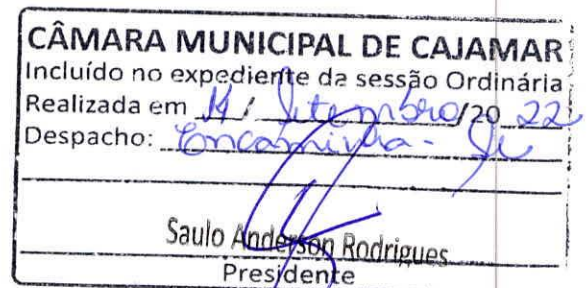 CÂMARA MUNICIPAL DE CAJAMAR
Incluído no expediente da sessão Ordinária
Realizada em 14 / Setembro/20 22
Despacho: Encaminha-se
Saulo Anderson Rodrigues
Presidente